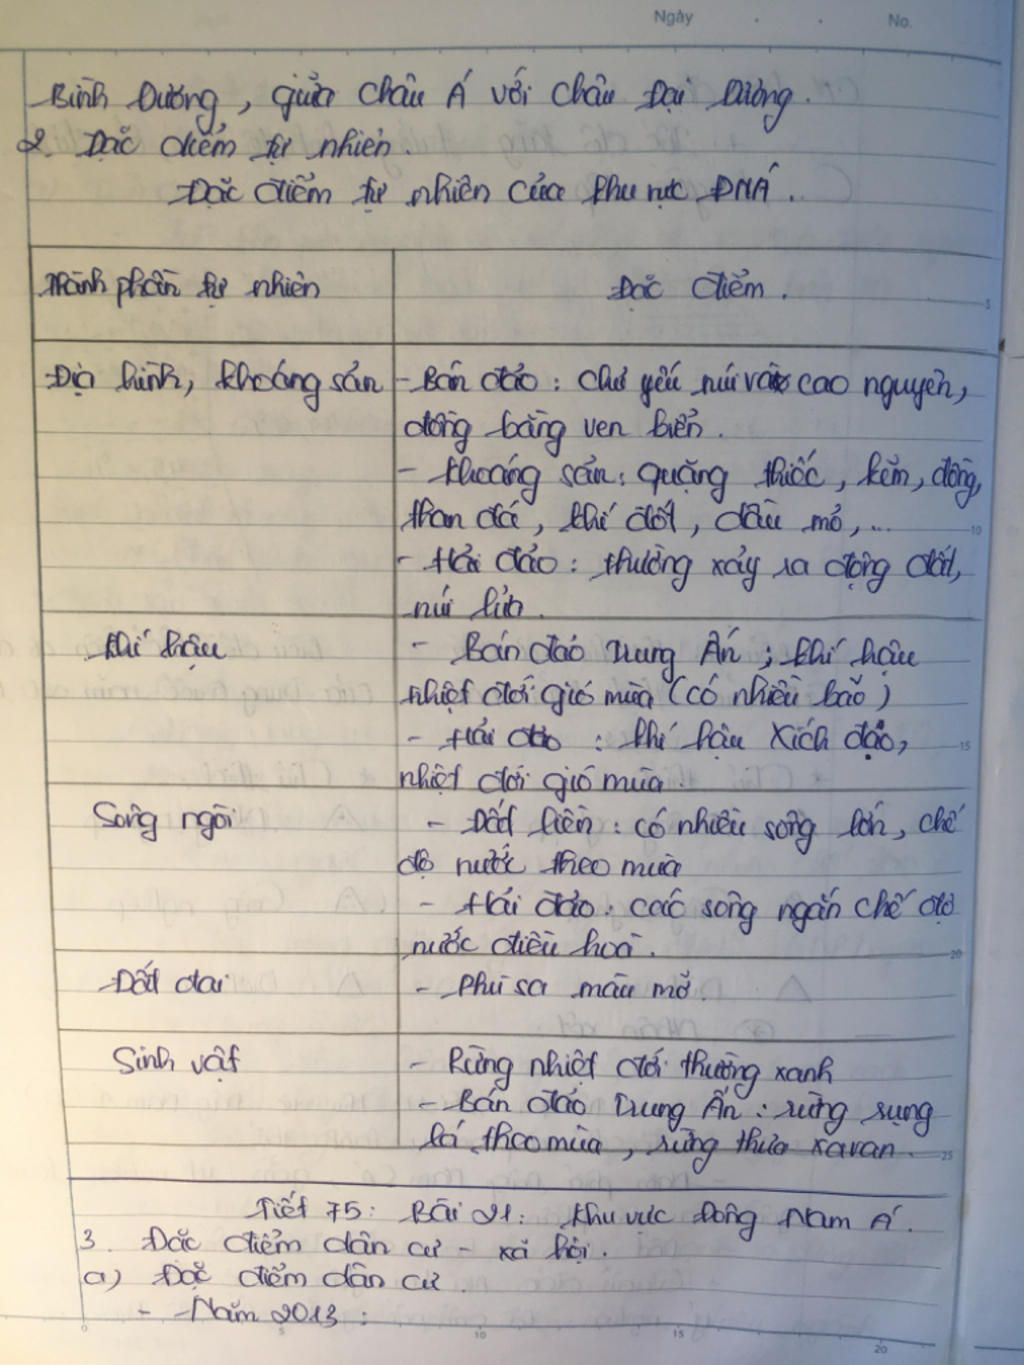 Ngày . . No.
Bình Dương, giữa Châu Á với Châu Đại Dương.
2. Đặc điểm tự nhiên.
Đặc điểm tự nhiên của khu vực ĐNÁ.
Thành phần tự nhiên
Đặc điểm.
Địa hình, khoáng sản
- Bán đảo : chủ yếu núi và cao nguyên,
đồng bằng ven biển.
- Khoáng sản: quặng thiếc, kẽm, đồng,
5
than đá, khí đốt, dầu mỏ,...
10
- Hải đảo : thường xảy ra động đất,
núi lửa.
Khí hậu
- Bán đảo Trung Ấn ; khí hậu
nhiệt đới gió mùa (có nhiều bão)
- Hải đảo : khí hậu Xích đạo,
15
nhiệt đới gió mùa.
Sông ngòi
- Đất liền : có nhiều sông lớn, chế
độ nước theo mùa
- Hải đảo: các sông ngắn chế độ
nước điều hoà.
20
Đất đai
- Phù sa màu mỡ.
Sinh vật
- Rừng nhiệt đới thường xanh
- Bán đảo Trung Ấn : rừng rụng
lá theo mùa, rừng thưa xavan.
25
Tiết 75: Bài 21: Khu vực Đông Nam Á.
3. Đặc điểm dân cư - xã hội.
a) Đặc điểm dân cư.
- Năm 2013 :
0 5 10 15 20